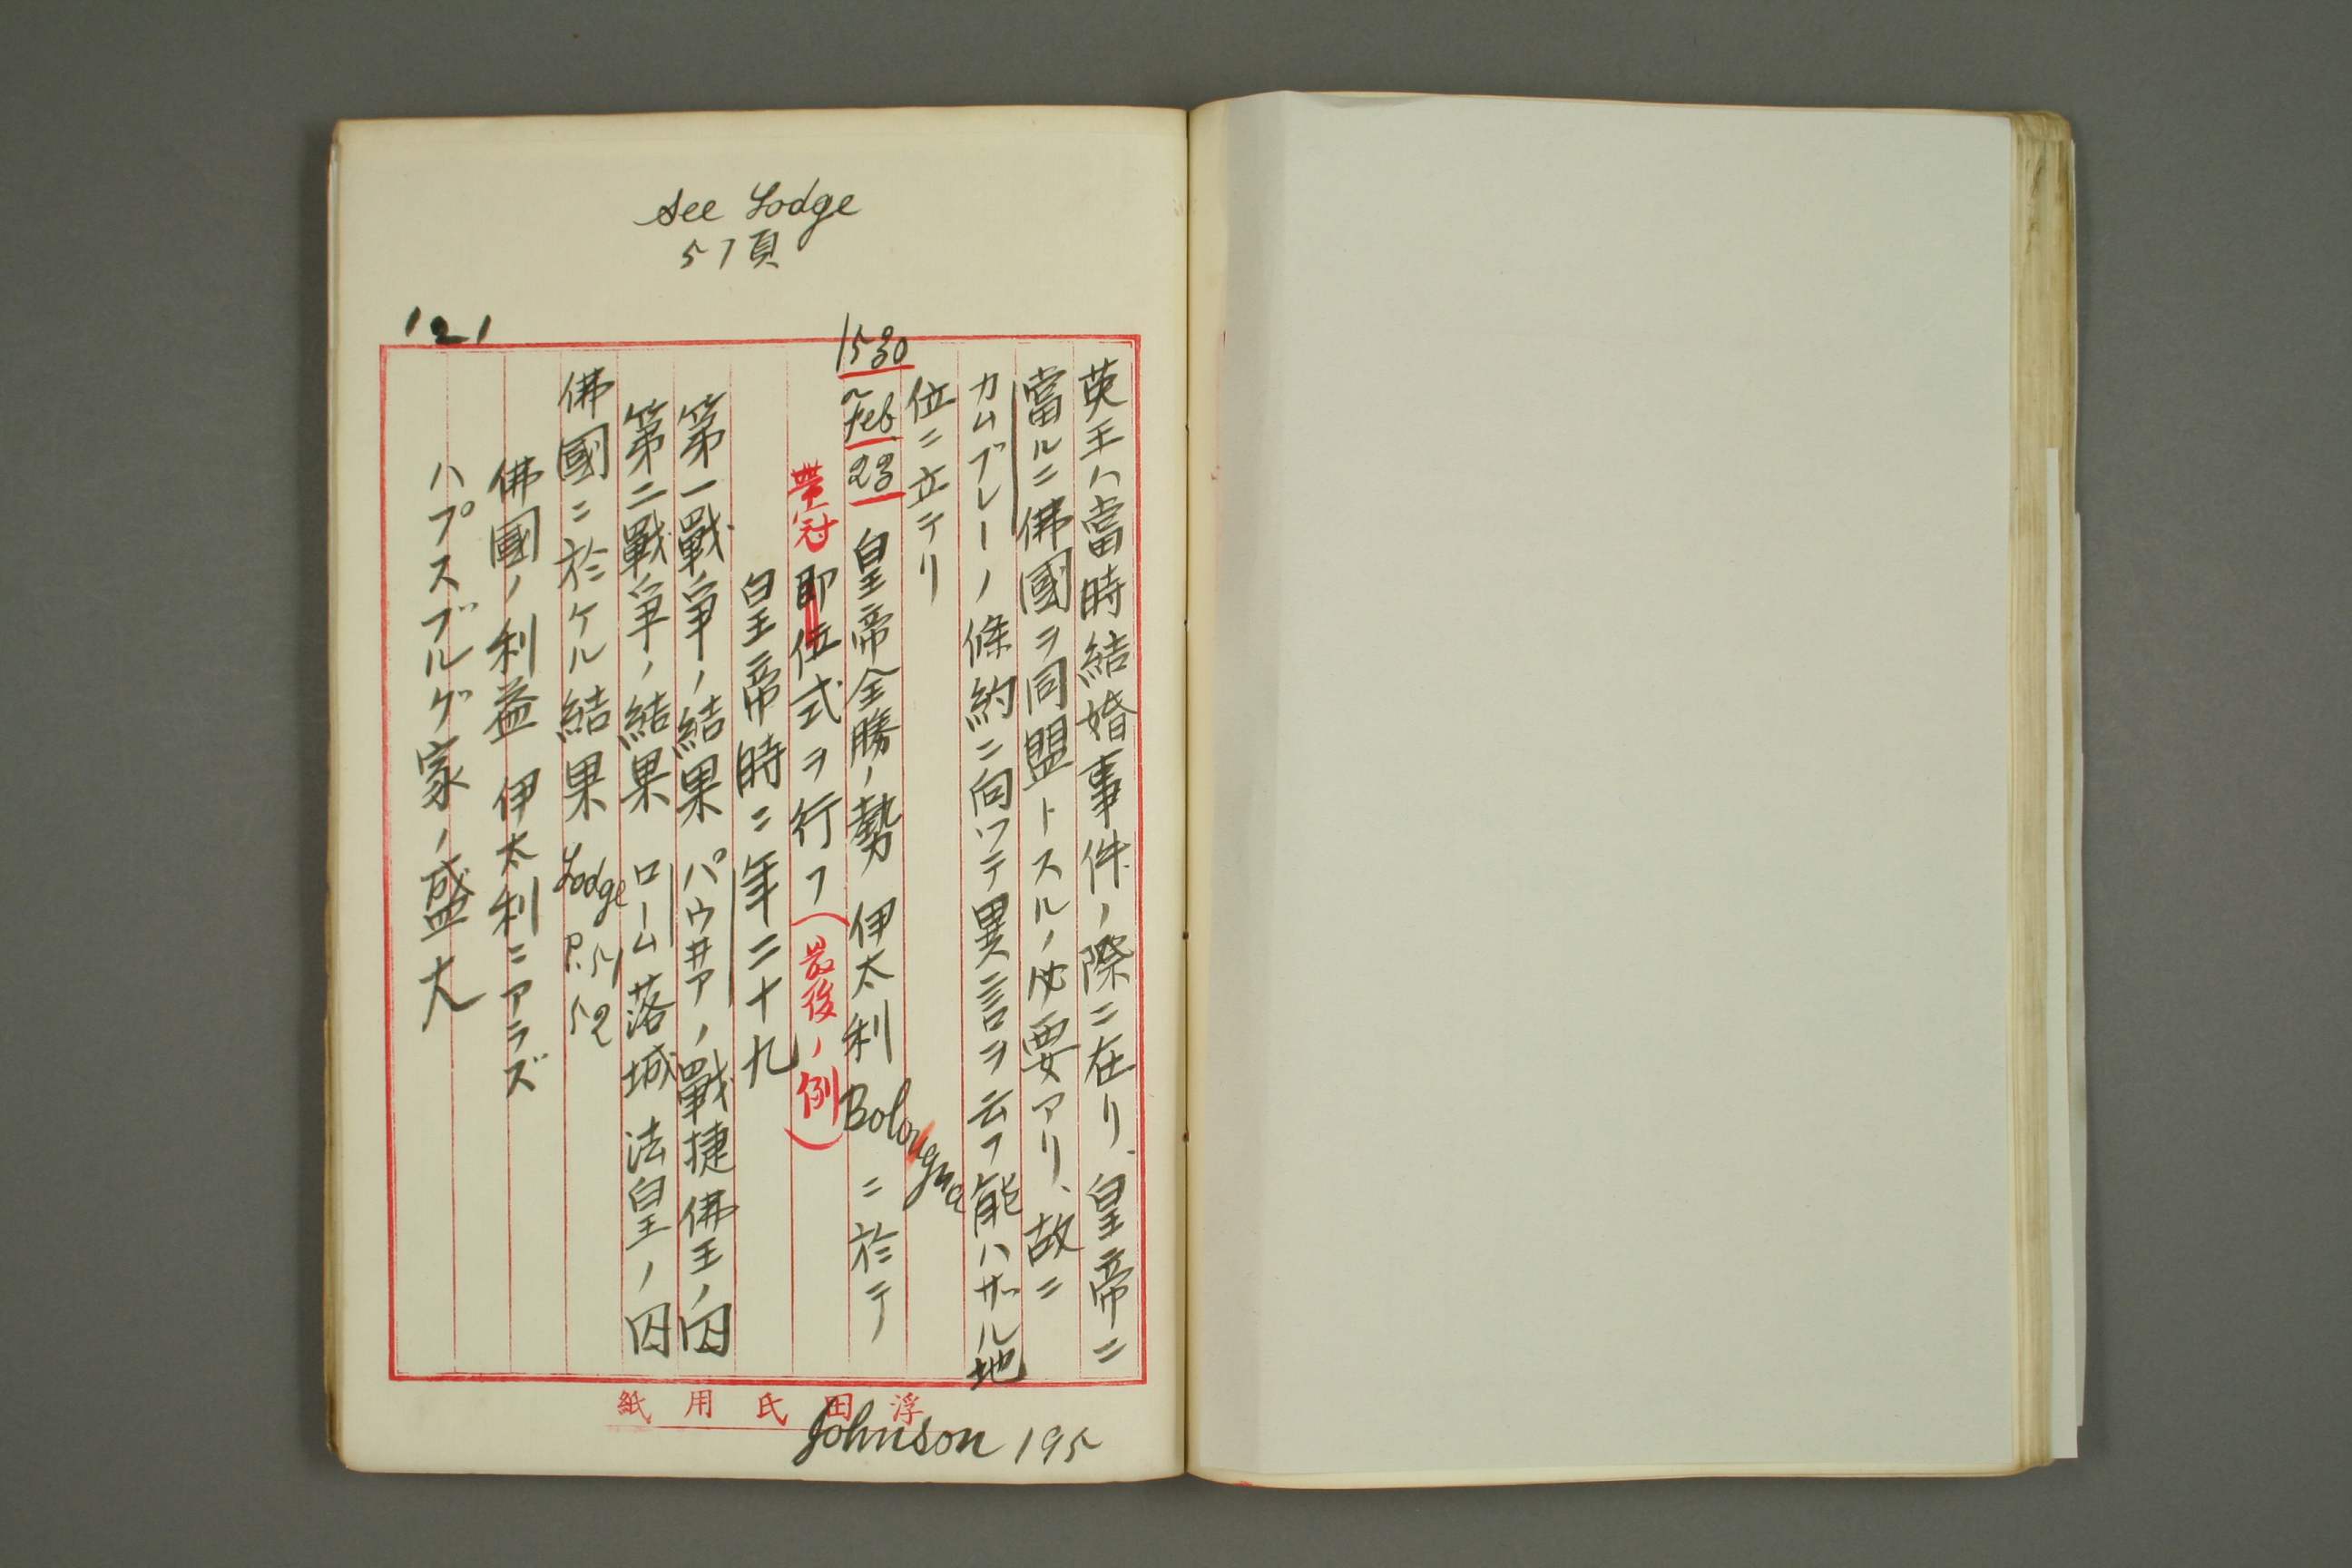 See Lodge
57頁
121
英王ハ當時結婚事件ノ際ニ在リ、皇帝ニ
當ルニ佛國ヲ同盟トスルノ必要アリ、故ニ
カムブレーノ條約ニ向ツテ異言ヲ云フ能ハザル地
位ニ立テリ
1530
Feb
23 皇帝全勝ノ勢 伊太利 Bologna ニ於テ
帯冠即位式ヲ行フ(最後ノ例)
皇帝時ニ年二十九
第一戰爭ノ結果 パウ井アノ戰捷佛王ノ囚
第二戰爭ノ結果 ローム落城 法皇ノ囚
佛國ニ於ケル結果 Lodge P.51 52
佛國ノ利益 伊太利ニアラズ
ハプスブルグ家ノ盛大
浮田氏用紙
Johnson 195